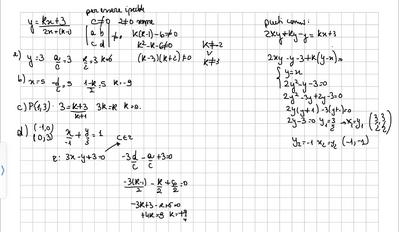 per essere iperbole
y = kx+3 / 2x+(k-1)
c≠0 2≠0 sempre
|a b| |c d| ≠0
k(k-1)-6≠0
k²-k-6≠0
(k-3)(k+2)≠0
k≠-2
k≠3
a) y=3 a/c=3 k/2=3 k=6
b) x=5 -d/c=5 1-k/2=5 k=-9
c) P(1,3) 3=k+3/k+1 3k=k k=0
d) (-1,0) (0,3) x/-1 + y/3 = 1
C∈r
r: 3x-y+3=0
-3d/c - a/c +3=0
-3(k-1)/2 - k/2 + 6/2=0
-3k+3-k+6=0
+4k=9 k=+9/4
punti comuni:
2xy+ky-y=kx+3
2xy-y-3+k(y-x)=0
{y=x
2y²-y-3=0
2y²-3y+2y-3=0
2y(y+1)-3(y+1)=0
2y-3=0 y₁=3/2 → x₁=y₁ (3/2,3/2)
y₂=-1 x₂=y₂ (-1,-1)